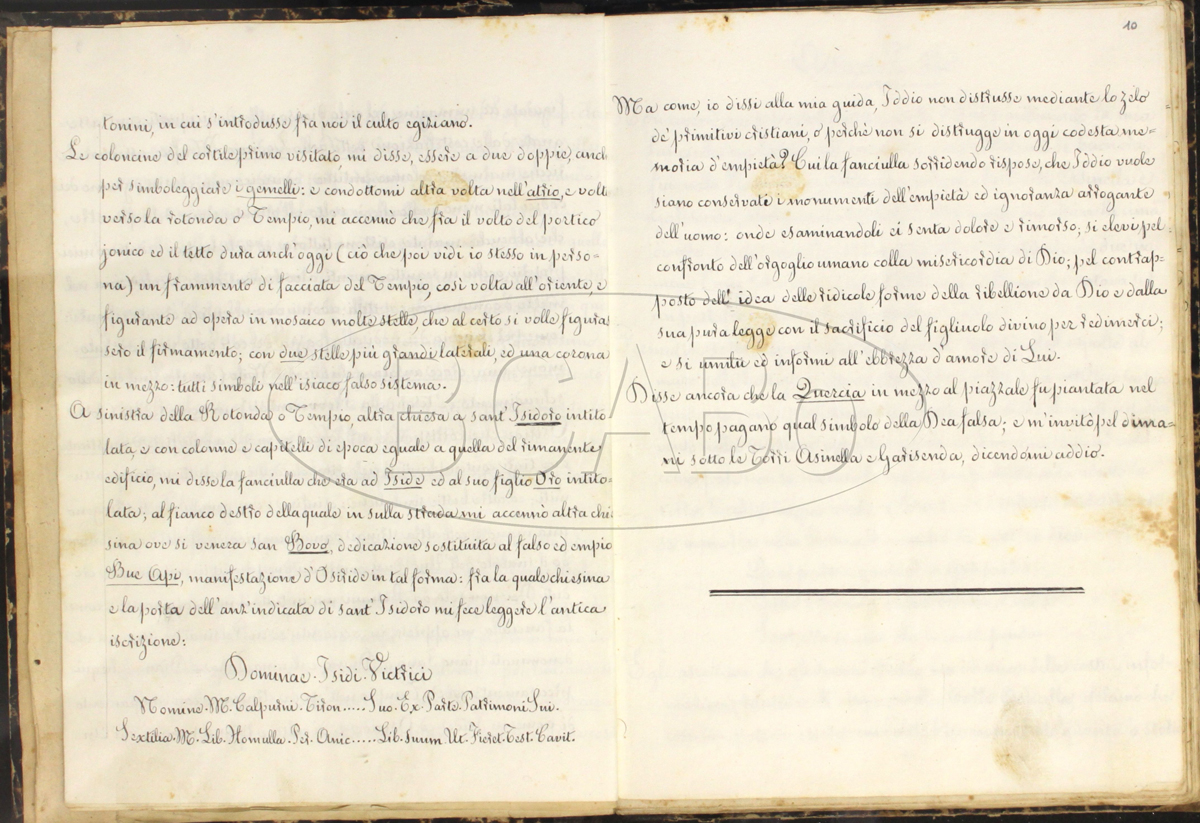 tonini, in cui s'introdusse fra noi il culto egiziano.
Le coloncine del cortile primo visitato, mi disse, essere a due doppie, anch
per simboleggiare i gemelli: e condottomi altra volta nell'atrio, e volt
verso la rotonda o Tempio, mi accennò che fra il volto del portico
jonico ed il tetto dura anch'oggi (ciò che poi vidi io stesso in perso=
na) un frammento di facciata del Tempio, così volta all'oriente, e
figurante ad opera in mosaico molte stelle, che al certo si volle figuras
sero il firmamento; con due stelle più grandi laterali, ed una corona
in mezzo: tutti simboli nell'isiaco falso sistema.
A sinistra della Rotonda o Tempio, altra chiesa a sant'Isidoro intito
lata, e con colonne e capitelli di epoca eguale a quella del rimanente
edificio, mi disse la fanciulla che era ad Iside ed al suo figlio Oro intito=
lata; al fianco destro della quale in sulla strada mi accennò altra chi
sina ove si venera san Bovo, dedicazione sostituita al falso ed empio
Bue Api, manifestazione d'Osiride in tal forma: fra la quale chiesina
e la porta dell'anz'indicata di sant'Isidoro mi fece leggere l'antica
iscrizione:
Dominae. Isidi. Victrici
Nomine. M. Calpurni. Tiron..... Suo. Ex. Parte. Patrimoni. Sui.
Sextilia. M. Lib. Homulla. Per. Anic..... Lib. Suum. Ut. Fieret. Test. Cavit.
10
Ma come, io dissi alla mia guida, Iddio non distrusse mediante lo zelo
de' primitivi cristiani, o perchè non si distrugge in oggi codesta me=
moria d'empietà? Cui la fanciulla sorridendo rispose, che Iddio vuole
siano conservati i monumenti dell'empietà ed ignoranza arrogante
dell'uomo: onde esaminandoli ei senta dolore e rimorso; si elevi pel
confronto dell'orgoglio umano colla misericordia di Dio; pel contrap=
posto dell'idea delle ridicole forme della ribellione da Dio e dalla
sua pura legge con il sacrificio del figliuolo divino per redimerci;
e si umilii ed informi all'ebbrezza d'amore di Lui.
Disse ancora che la Quercia in mezzo al piazzale fu piantata nel
tempo pagano qual simbolo della Dea falsa; e m'invitò pel dima=
ni sotto le Torri Asinella e Garisenda, dicendomi addio.
BCABO